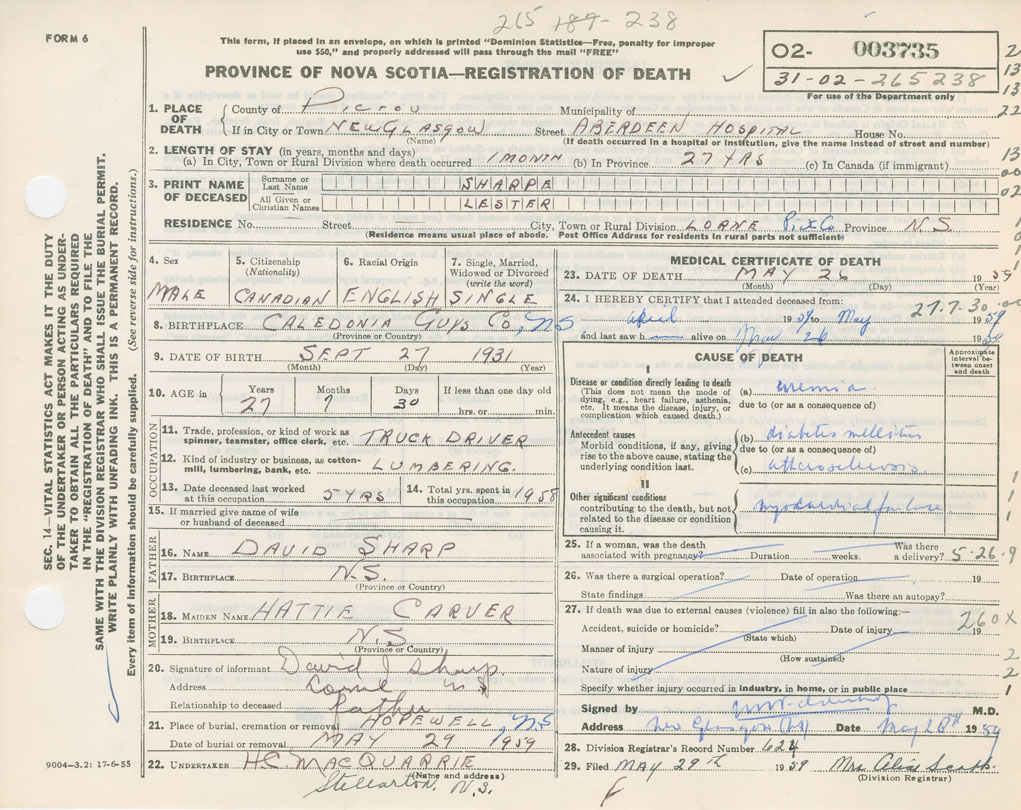 215 187- 238
FORM 6
This form, if placed in an envelope, on which is printed "Dominion Statistics—Free, penalty for improper
use $50," and properly addressed will pass through the mail "FREE"
PROVINCE OF NOVA SCOTIA—REGISTRATION OF DEATH
02- 003735
31-02-265238
For use of the Department only
1. PLACE OF DEATH
County of PICTOU Municipality of
If in City or Town NEW GLASGOW Street ABERDEEN HOSPITAL House No.
(Name) (If death occurred in a hospital or institution, give the name instead of street and number)
2. LENGTH OF STAY (in years, months and days)
(a) In City, Town or Rural Division where death occurred 1 MONTH (b) In Province 27 YRS (c) In Canada (if immigrant)
3. PRINT NAME OF DECEASED
Surname or Last Name SHARPE
All Given or Christian Names LESTER
RESIDENCE No. Street City, Town or Rural Division LORNE Pict Co Province N.S.
(Residence means usual place of abode. Post Office Address for residents in rural parts not sufficient)
4. Sex 5. Citizenship (Nationality) 6. Racial Origin 7. Single, Married, Widowed or Divorced (write the word)
MALE CANADIAN ENGLISH SINGLE
8. BIRTHPLACE CALEDONIA GUYS CO, NS
(Province or Country)
9. DATE OF BIRTH SEPT 27 1931
(Month) (Day) (Year)
10. AGE in Years Months Days If less than one day old
27 7 30 hrs. or min.
OCCUPATION
11. Trade, profession, or kind of work as spinner, teamster, office clerk, etc. TRUCK DRIVER
12. Kind of industry or business, as cotton-mill, lumbering, bank, etc. LUMBERING.
13. Date deceased last worked at this occupation 5 YRS 14. Total yrs. spent in this occupation 1958
15. If married give name of wife or husband of deceased
FATHER
16. NAME DAVID SHARP
17. BIRTHPLACE N.S.
(Province or Country)
MOTHER
18. MAIDEN NAME HATTIE CARVER
19. BIRTHPLACE N.S
(Province or Country)
20. Signature of informant David J Sharp.
Address Lorne N.S
Relationship to deceased father
21. Place of burial, cremation or removal HOPEWELL, NS
Date of burial or removal MAY 29 1959
22. UNDERTAKER H.C. MACQUARRIE
(Name and address)
Stellarton, N.S.
9004-3.2: 17-6-55
MEDICAL CERTIFICATE OF DEATH
23. DATE OF DEATH MAY 26 1959
(Month) (Day) (Year)
24. I HEREBY CERTIFY that I attended deceased from: 27.7.30.00
April 1959 to May 1959
and last saw h alive on May 26 1959
CAUSE OF DEATH
Approximate interval between onset and death
I
Disease or condition directly leading to death
(This does not mean the mode of dying, e.g., heart failure, asthenia, etc. It means the disease, injury, or complication which caused death.)
(a) uremia
due to (or as a consequence of)
Antecedent causes
Morbid conditions, if any, giving rise to the above cause, stating the underlying condition last.
(b) diabetes mellitus
due to (or as a consequence of)
(c) atherosclerosis
II
Other significant conditions contributing to the death, but not related to the disease or condition causing it.
myocardial failure
25. If a woman, was the death associated with pregnancy? Duration weeks. Was there a delivery? 5-26-9
26. Was there a surgical operation? Date of operation 19
State findings Was there an autopsy?
27. If death was due to external causes (violence) fill in also the following:—
Accident, suicide or homicide? Date of injury 19 260X
(State which)
Manner of injury
(How sustained)
Nature of injury
Specify whether injury occurred in industry, in home, or in public place
Signed by M.D.
Address New Glasgow (NS) Date May 28th 1959
28. Division Registrar's Record Number 624
29. Filed MAY 29th 1959 Mrs. Alice Scott.
(Division Registrar)
SEC. 14—VITAL STATISTICS ACT MAKES IT THE DUTY
OF THE UNDERTAKER OR PERSON ACTING AS UNDER-
TAKER TO OBTAIN ALL THE PARTICULARS REQUIRED
IN THE "REGISTRATION OF DEATH" AND TO FILE THE
SAME WITH THE DIVISION REGISTRAR WHO SHALL ISSUE THE BURIAL PERMIT.
WRITE PLAINLY WITH UNFADING INK. THIS IS A PERMANENT RECORD.
Every item of information should be carefully supplied. (See reverse side for instructions.)